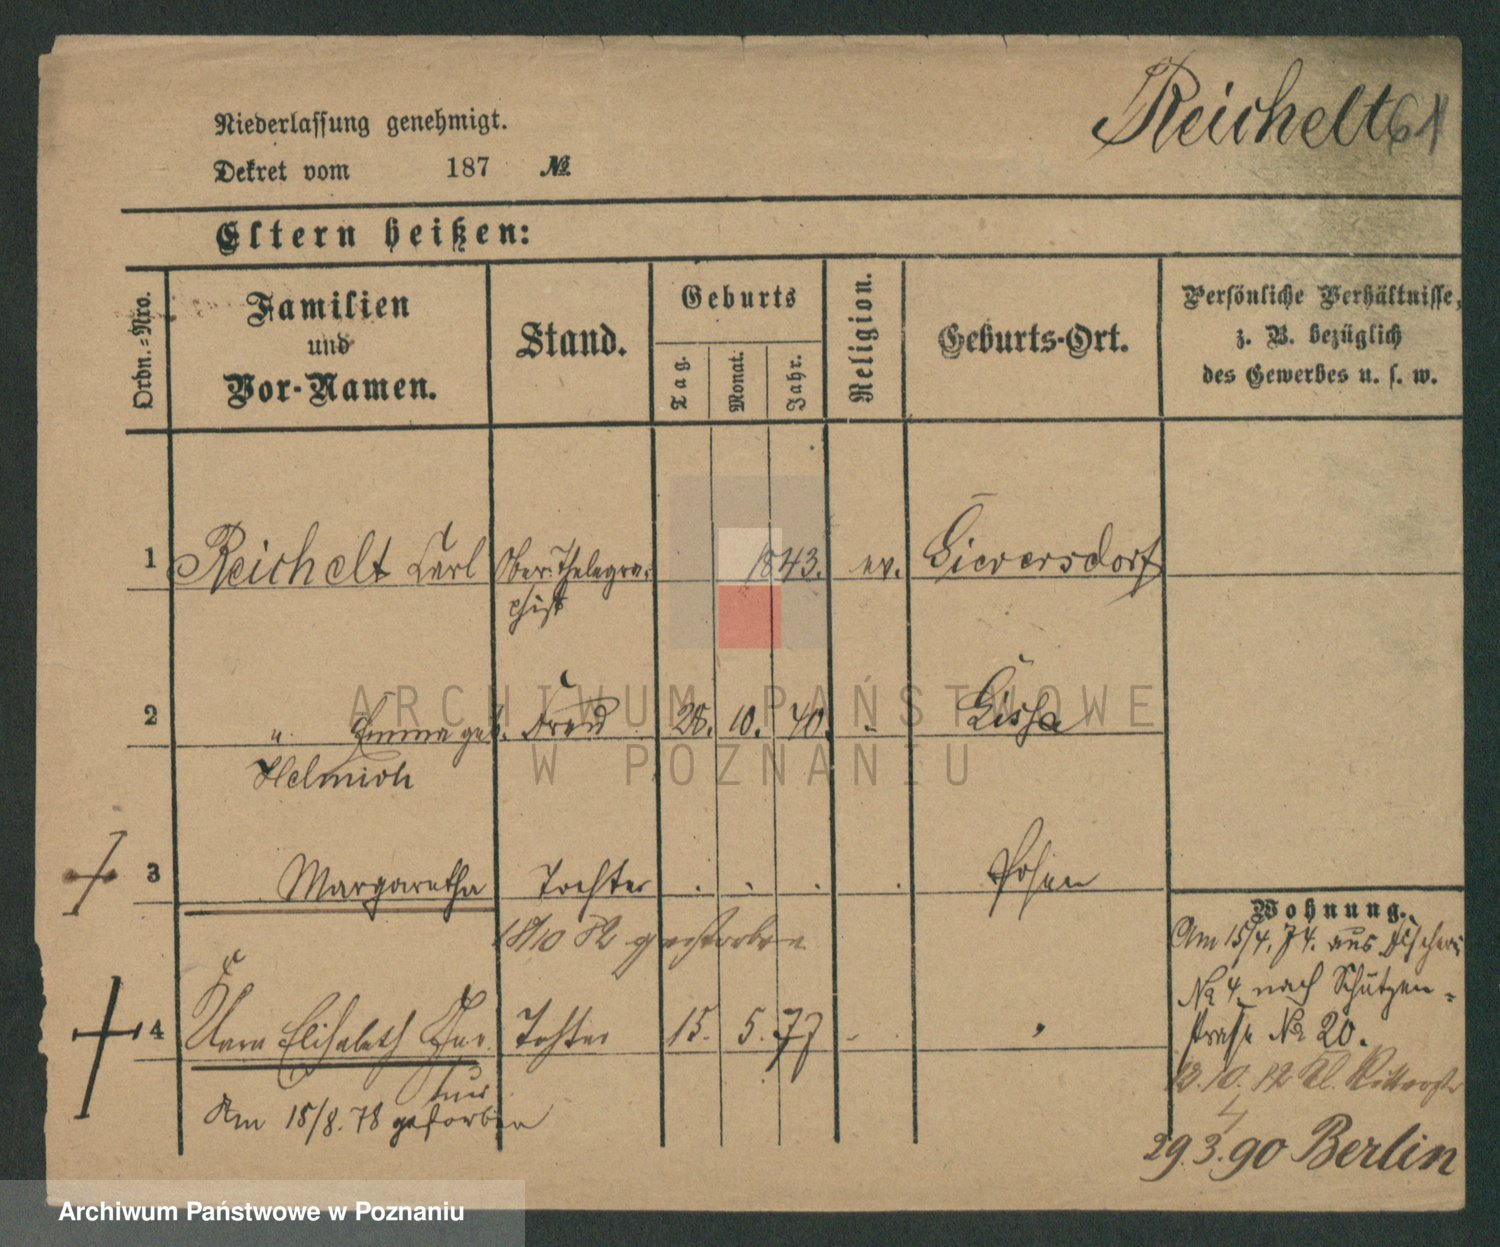 Reichelt 61
Niederlassung genehmigt.
Dekret vom 187 №
Eltern heißen:
Ordn.=Nro.
Familien
und
Vor-Namen.
Stand.
Geburts
Tag.
Monat.
Jahr.
Religion.
Geburts-Ort.
Persönliche Verhältnisse,
z. B. bezüglich
des Gewerbes u. s. w.
1 Reichelt Carl Ober-Thelegra- 1843. ev. Gieversdorf
phist
2 " Emma geb. Frau 28. 10. 40. " Lissa
Helmich
3 Margaretha Tochter . . . . Posen
18/10 82 gestorben
4 Clara Elisabeth Tochter 15. 5. 77 -
Am 15/8. 78 gestorben
Wohnung.
Am 15/4. 74. aus
No 4 nach Schützen-
straße No 20.
12.10. Kl. Ritterstr
4
29.3.90 Berlin
ARCHIWUM PAŃSTWOWE
W POZNANIU
Archiwum Państwowe w Poznaniu